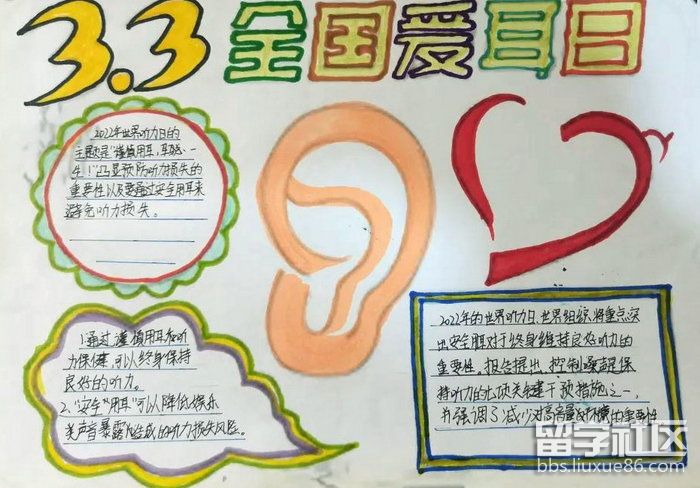 3.3全国爱耳日
2022年世界听力日的
主题是"谨慎用耳,享听一
生"凸显预防听力损失的
重要性以及要通过安全用耳来
避免听力损失。
1.通过谨慎用耳和听
力保健,可以终身保持
良好的听力。
2."安全"用耳"可以降低娱乐
类声音暴露所造成的听力损失风险。
2022年的世界听力日,世界组织将重点突
出安全用耳对于终身维持良好听力的
重要性。报告提出,控制噪声是保
持听力的七项关键干预措施之一,
并强调了减少对高音量的重要性
留学社区
bbs.liuxue86.com